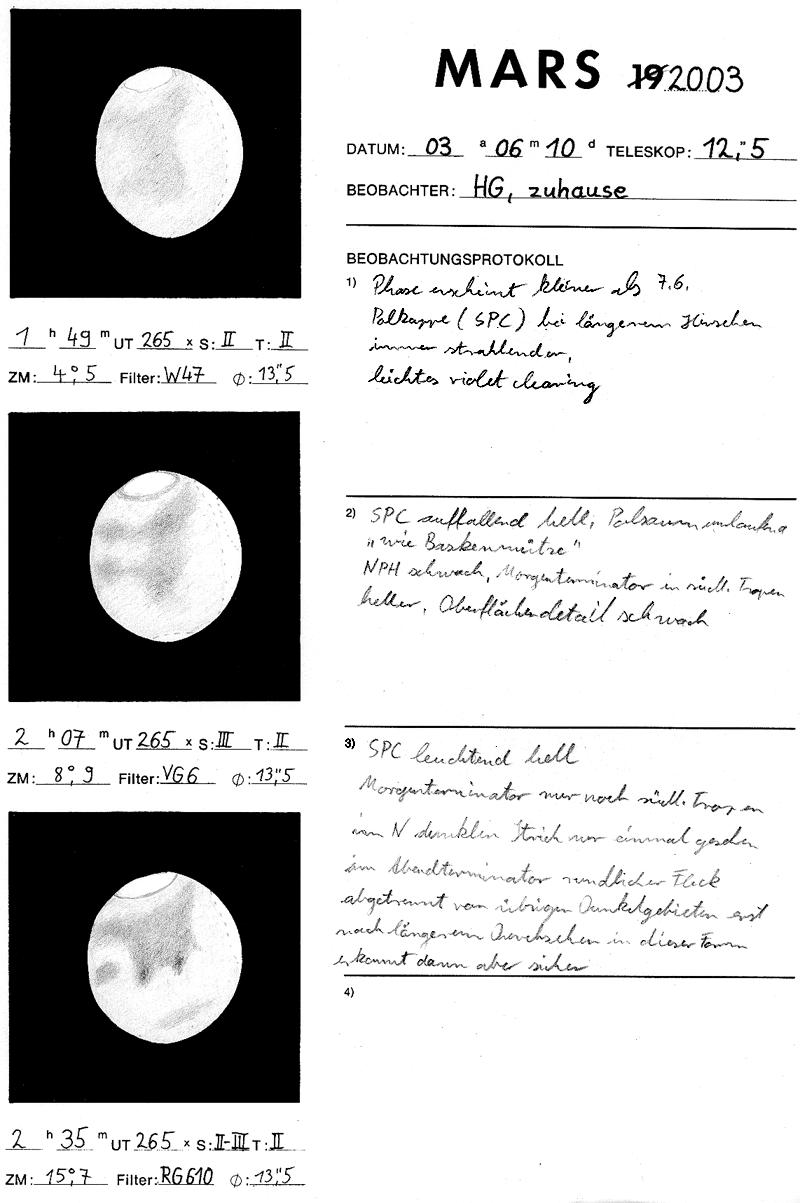 MARS 19 2003
DATUM: 03 a 06 m 10 d TELESKOP: 12,"5
BEOBACHTER: HG, zuhause
BEOBACHTUNGSPROTOKOLL
1) Phase erscheint kleiner als 7.6.
Polkappe (SPC) bei längerem Hinsehen
immer strahlender,
leichtes violet clearing
1 h 49 m UT 265 x S: II T: II
ZM: 4°,5 Filter: W47 Ø: 13,"5
2) SPC auffallend hell, Polsaum umlaufend
"wie Baskenmütze"
NPH schwach, Morgenterminator in südl. Tropen
heller, Oberflächendetail schwach
2 h 07 m UT 265 x S: III T: II
ZM: 8°,9 Filter: VG6 Ø: 13,"5
3) SPC leuchtend hell
Morgenterminator nur noch südl. Tropen
im N dunklen Strich nur einmal gesehen
am Abendterminator rundlicher Fleck
abgetrennt von übrigen Dunkelgebieten erst
nach längerem Durchsehen in dieser Form
erkannt dann aber sicher
4)
2 h 35 m UT 265 x S: II-III T: II
ZM: 15°,7 Filter: RG610 Ø: 13,"5